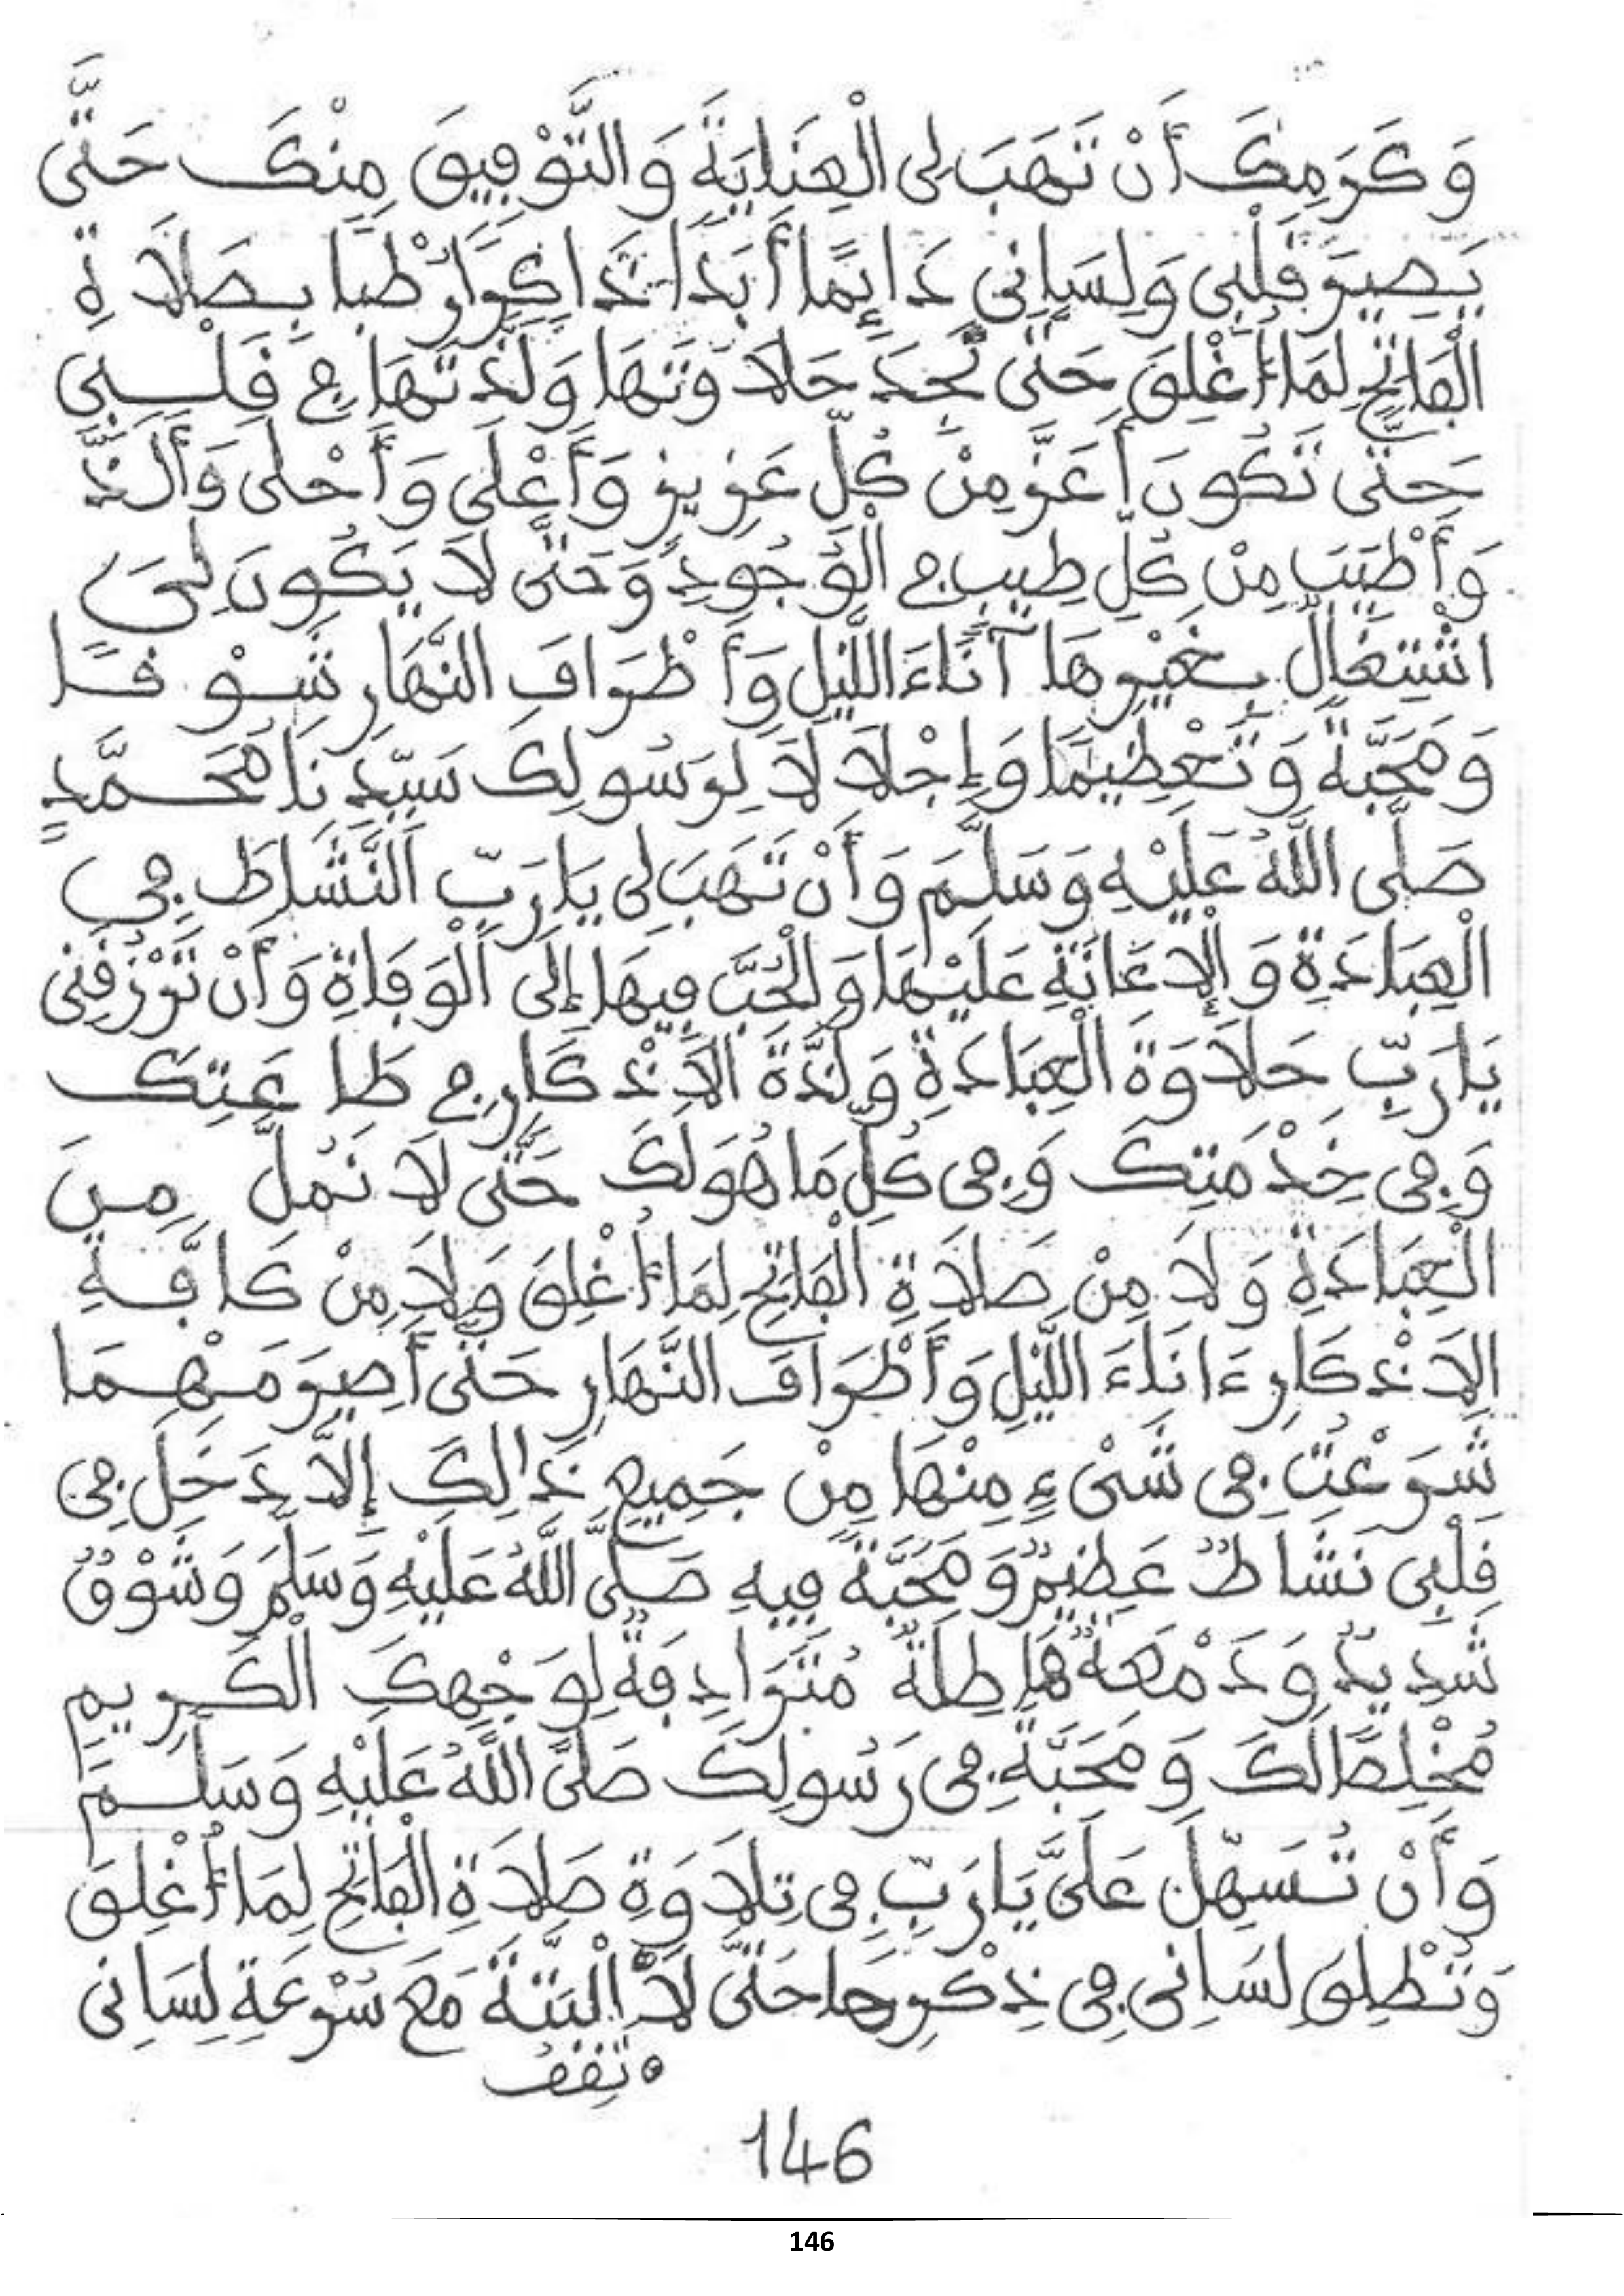 وَكَرَمِكَ أَنْ تَهَبَ لِى الْعِنَايَةَ وَالتَّوْفِيقَ مِنْكَ حَتَّى
يَصِيرَ قَلْبِى وَلِسَانِى دَائِمًا أَبَدًا ذَاكِرًا رَطْبًا بِصَلَاةِ
الْفَاتِحِ لِمَا أُغْلِقَ حَتَّى نَجِدَ حَلَاوَتَهَا وَلَذَّتَهَا فِي قَلْبِى
حَتَّى تَكُونَ أَعَزَّ مِنْ كُلِّ عَزِيزٍ وَأَعْلَى وَأَحْلَى وَأَلَذَّ
وَأَطْيَبَ مِنْ كُلِّ طِيبٍ فِي الْوُجُودِ وَحَتَّى لَا يَكُونَ لِىَ
اشْتِغَالٌ بِغَيْرِهَا آنَاءَ اللَّيْلِ وَأَطْرَافَ النَّهَارِ شَوْقًا
وَمَحَبَّةً وَتَعْظِيمًا وَإِجْلَالًا لِرَسُولِكَ سَيِّدِنَا مُحَمَّدٍ
صَلَّى اللَّهُ عَلَيْهِ وَسَلَّمَ وَأَنْ تَهَبَ لِى يَارَبِّ النَّشَاطَ فِى
الْعِبَادَةِ وَالْإِعَانَةِ عَلَيْهَا وَالْحُبَّ فِيهَا إِلَى الْوَفَاةِ وَأَنْ تَرْزُقَنِى
يَارَبِّ حَلَاوَةَ الْعِبَادَةِ وَلَذَّةَ الْأَذْكَارِ فِي طَاعَتِكَ
وَفِى خِدْمَتِكَ وَفِى كُلِّ مَا هُوَ لَكَ حَتَّى لَا نَمُلَّ مِنَ
الْعِبَادَةِ وَلَا مِنْ صَلَاةِ الْفَاتِحِ لِمَا أُغْلِقَ وَلَا مِنْ كَافَّةِ
الْأَذْكَارِ ءَانَاءَ اللَّيْلِ وَأَطْرَافَ النَّهَارِ حَتَّى أَصِيرَ مَهْمَا
شَرَعْتُ فِى شَىْءٍ مِنْهَا مِنْ جَمِيعِ ذَالِكَ إِلَّا دَخَلَ فِى
قَلْبِى نَشَاطٌ عَظِيمٌ وَمَحَبَّةٌ فِيهِ صَلَّى اللَّهُ عَلَيْهِ وَسَلَّمَ وَشَوْقٌ
شَدِيدٌ وَدَمْعَةٌ هَاطِلَةٌ مُتَرَادِفَةٌ لِوَجْهِكَ الْكَرِيمِ
مُخْلِصًا لَكَ وَمَحَبَّةً فِى رَسُولِكَ صَلَّى اللَّهُ عَلَيْهِ وَسَلَّمَ
وَأَنْ تُسَهِّلَ عَلَىَّ يَارَبِّ فِى تِلَاوَةِ صَلَاةِ الْفَاتِحِ لِمَا أُغْلِقَ
وَتُطْلِقَ لِسَانِى فِى ذِكْرِهَا حَتَّى لَا أَلْبَتَّةَ مَعَ سُرْعَةِ لِسَانِى
146
146